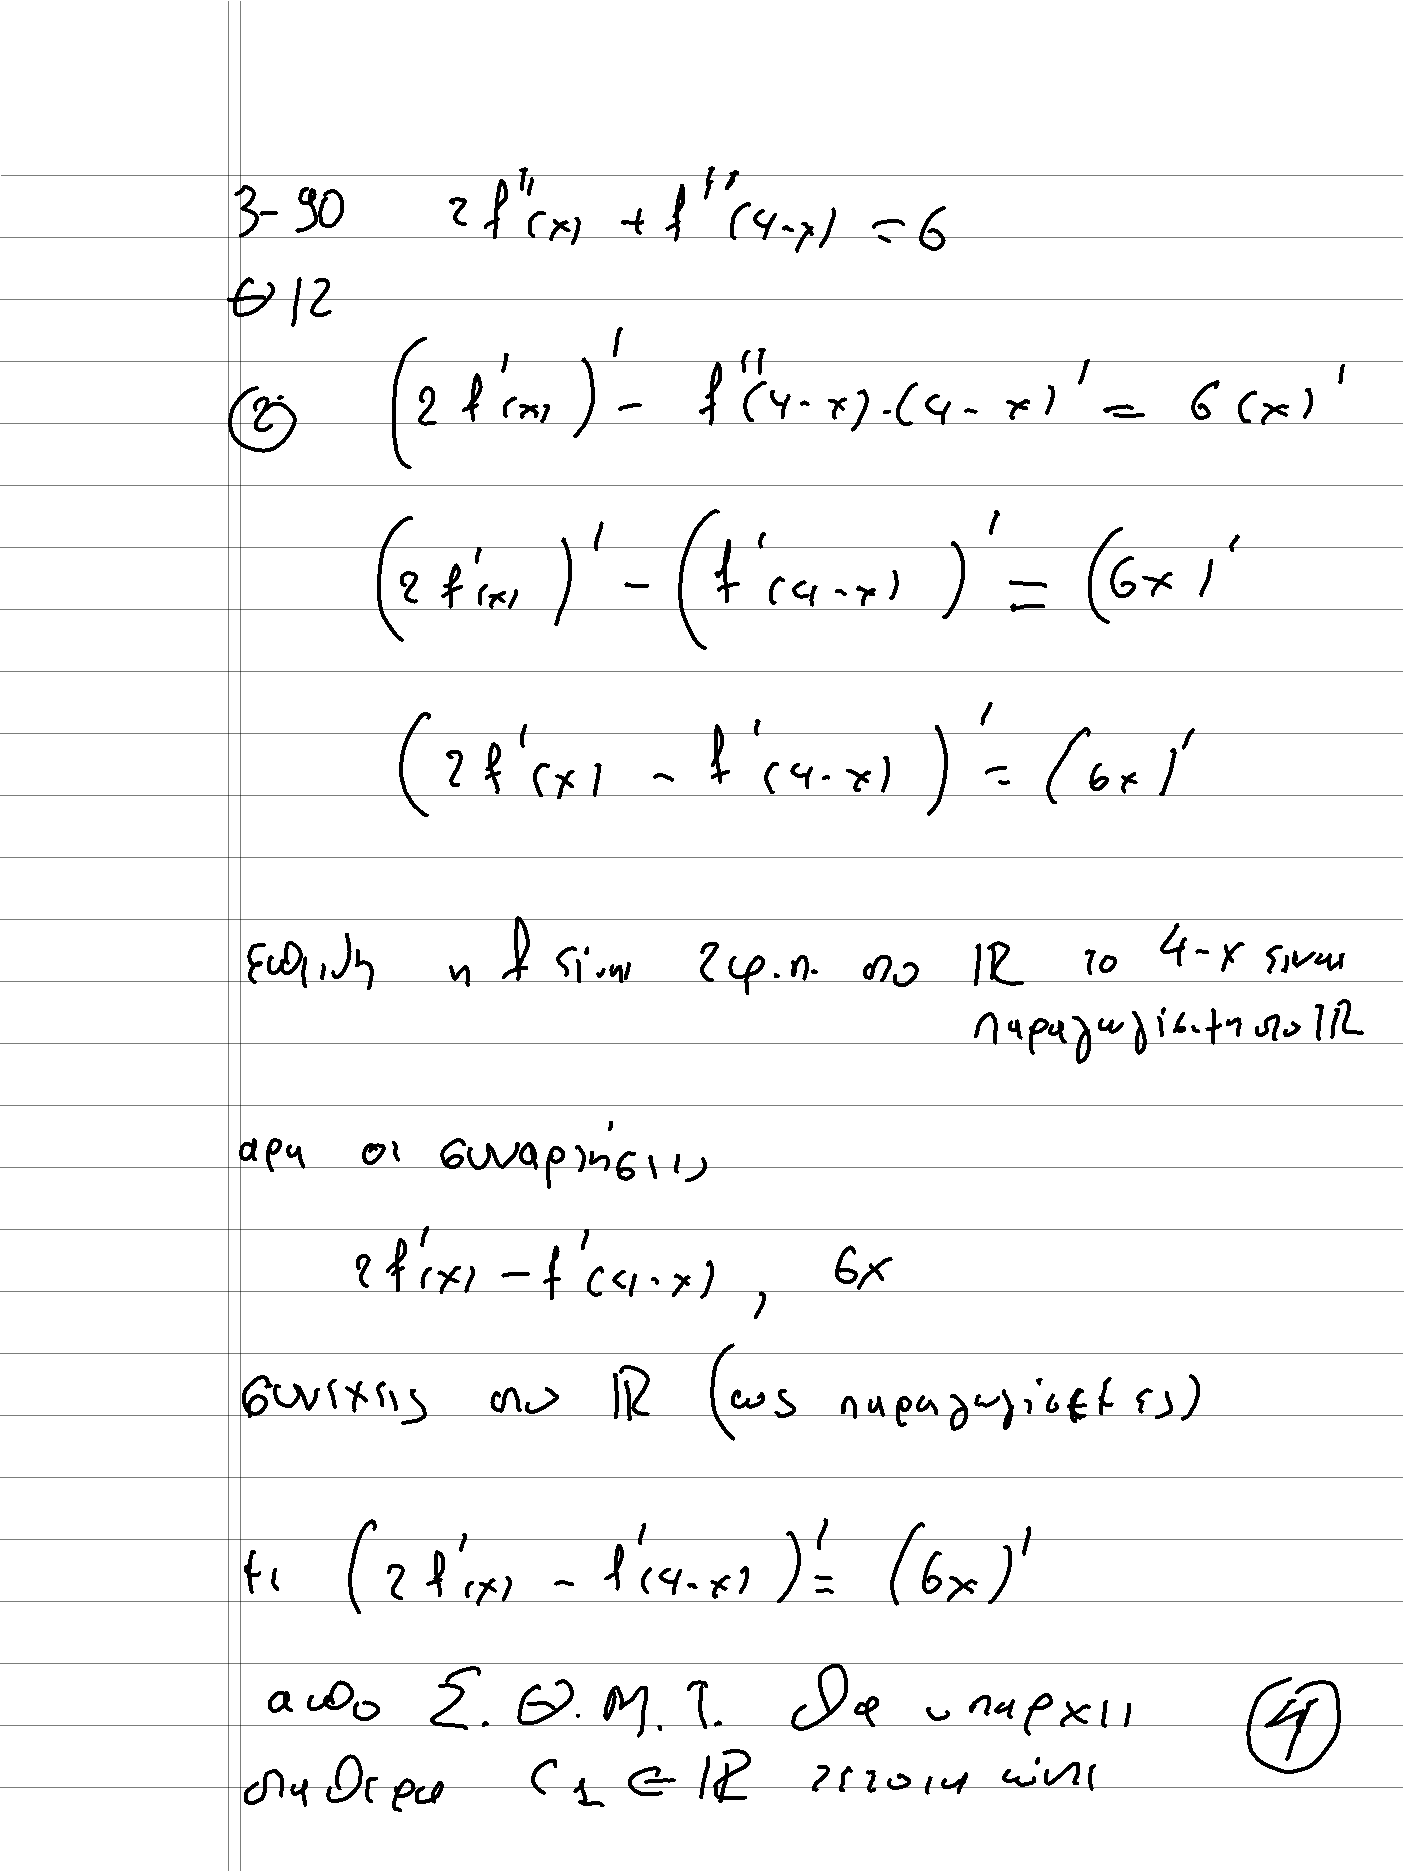 3-90 2f''(x) + f''(4-x) = 6
Θ12
② (2f'(x))' - f''(4-x)·(4-x)' = 6(x)'
(2f'(x))' - (f'(4-x))' = (6x)'
(2f'(x) - f'(4-x))' = (6x)'
επειδη η f είναι 2φ.π. στο ℝ το 4-x ειναι
παραγωγίσιμη στο ℝ
αρα οι συναρτήσεις
2f'(x) - f'(4-x), 6x
συνεχείς στο ℝ (ως παραγωγίσιμες)
κι (2f'(x) - f'(4-x))' = (6x)'
απο Σ.Θ.Μ.Τ. θα υπαρχει ④
σταθερα c₁ ∈ ℝ τετοια ώστε